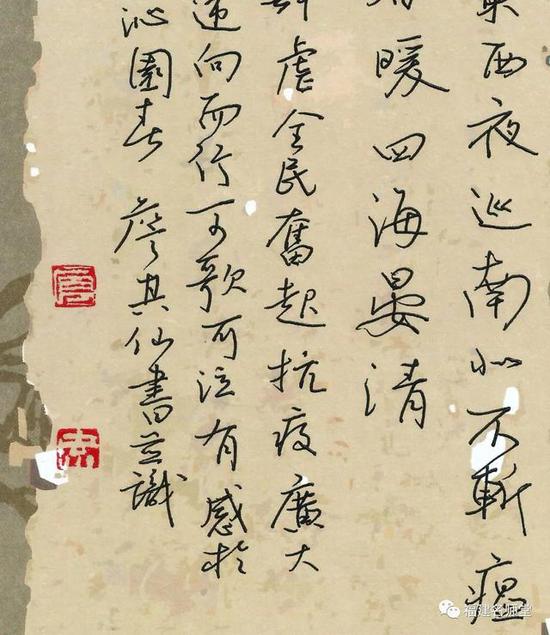 東西夜巡南北不斬瘟
暖四海晏清
虐全民奮起抗疫廣大
逆向而行可歌可泣有感於
沁園春 詹其仙書並識
福建名师堂